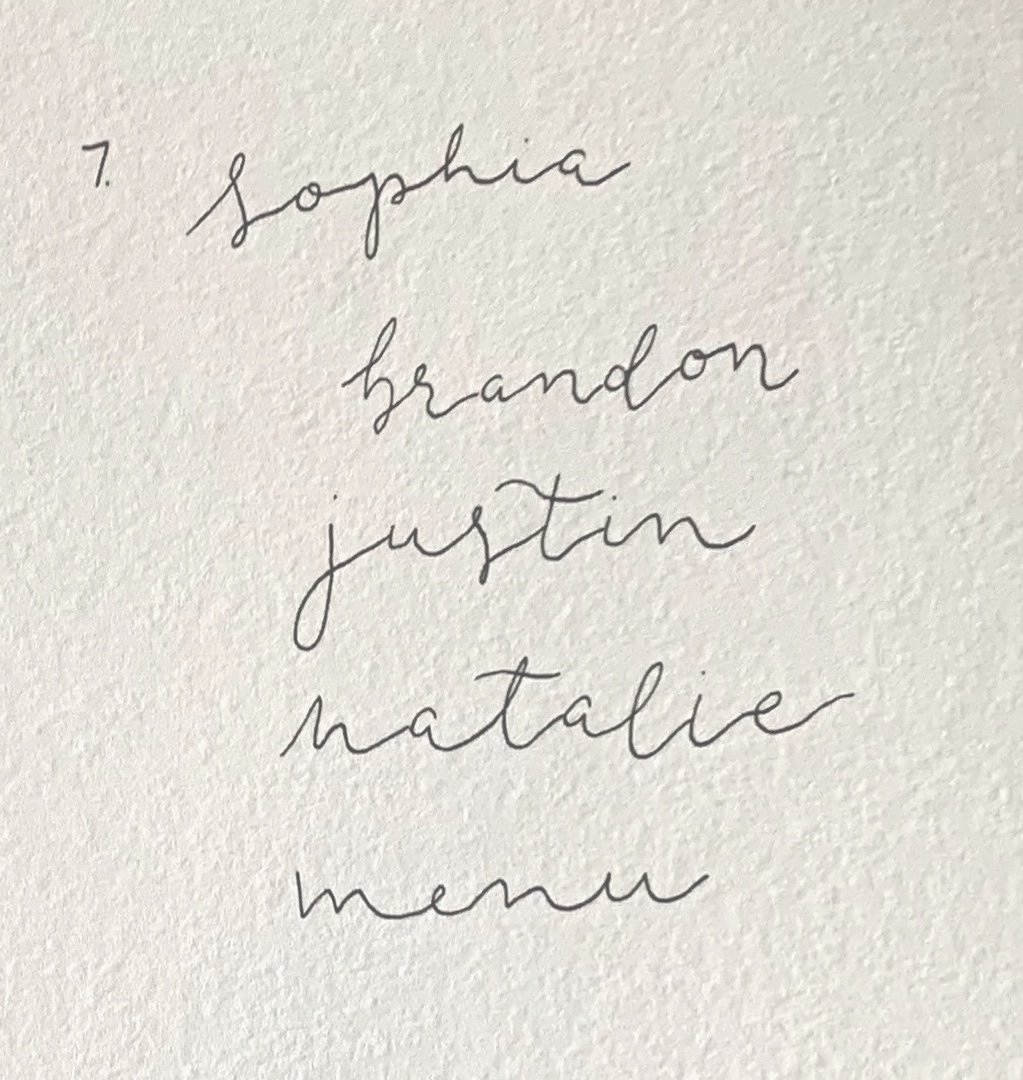 7. sophia
brandon
justin
natalie
menu